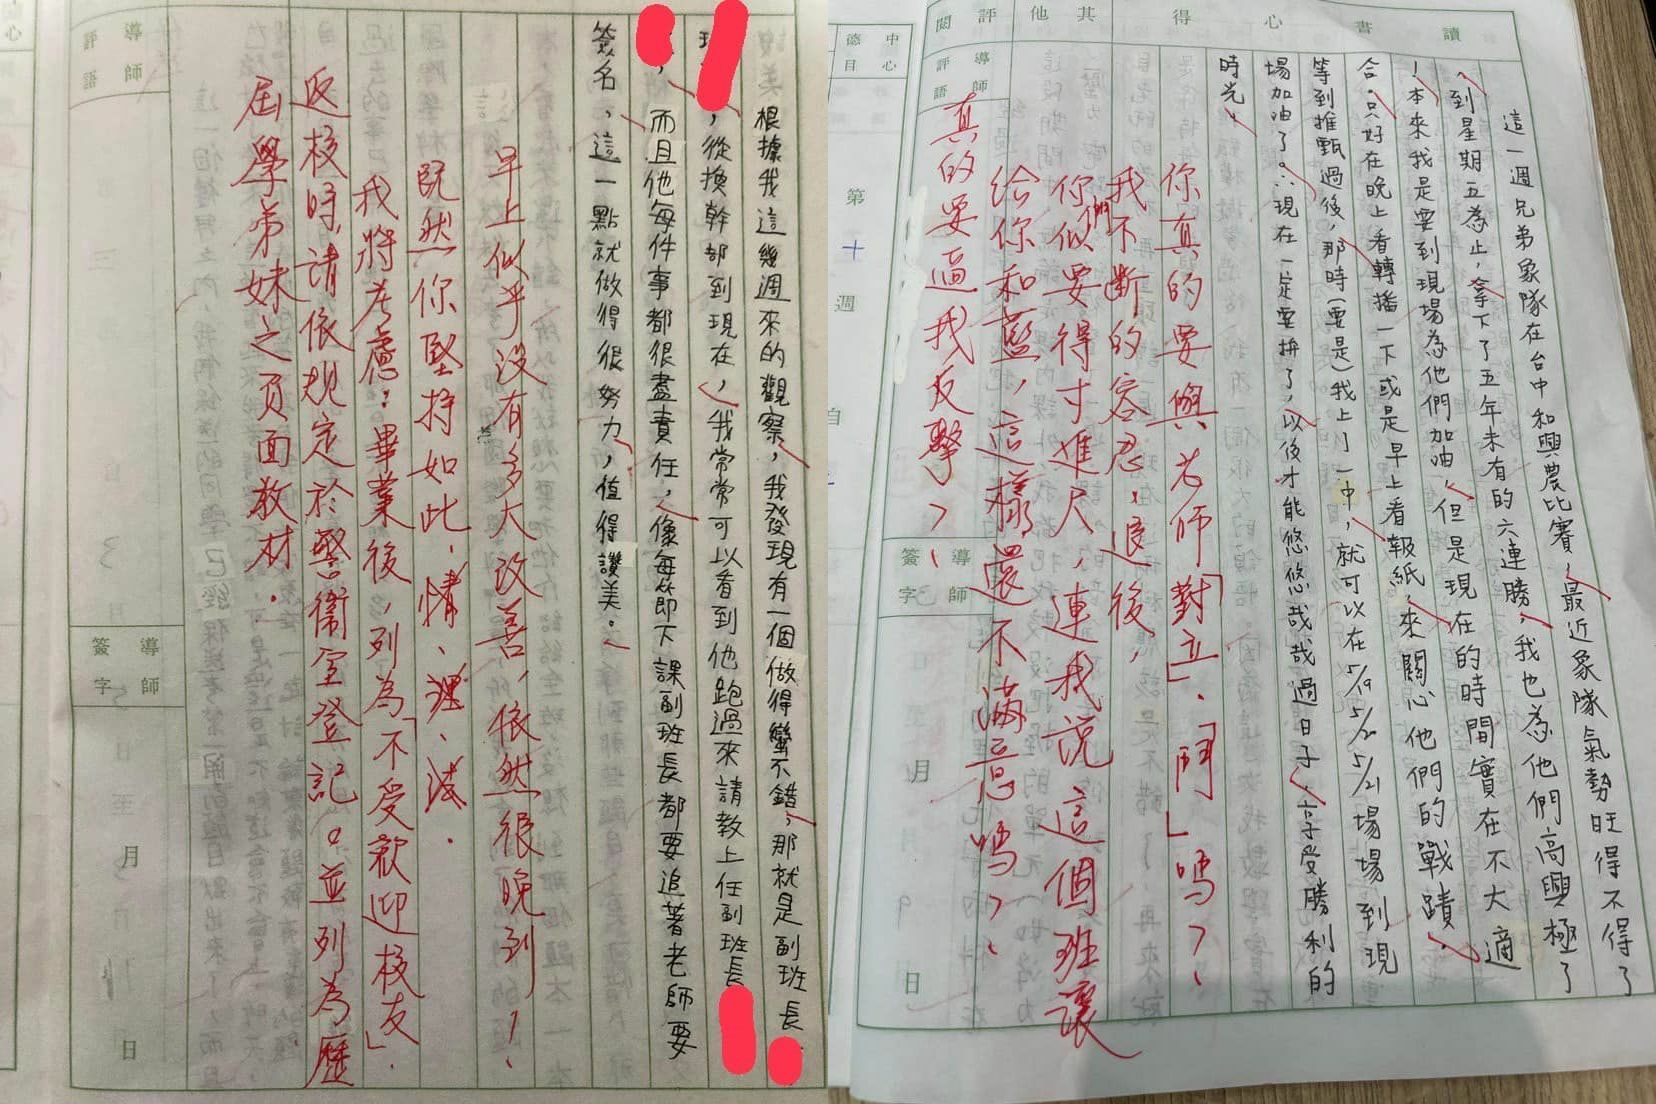 讀書心得
其他
評閱
這一週兄弟象隊在台中和興農比賽，最近象隊氣勢旺得不得了
，到星期五為止，拿下了五年未有的六連勝，我也為他們高興極了
！本來我是要到現場為他們加油，但是現在的時間實在不大適
合，只好在晚上看轉播一下或是早上看報紙，來關心他們的戰蹟，
等到推甄過後，那時(要是)我上了一中，就可以在5/19 5/20 5/21場場到現
場加油了。∴現在一定要拚了，以後才能悠悠哉哉過日子，享受勝利的
時光。
導師評語
你真的要與老師「對立」、「鬥」嗎？！
我不斷的容忍、退後，
你們似要得寸進尺，連我說這個班讓
給你和藍，這樣還不滿意嗎？！
真的要逼我反擊？！
導師簽字
月
日
中心德目
第十週
自
根據我這幾週來的觀察，我發現有一個做得蠻不錯，那就是副班長
，從換幹部到現在，我常常可以看到他跑過來請教上任副班長
，而且他每件事都很盡責任，像每節下課副班長都要追著老師要
簽名，這一點就做得很努力，值得讚美。
早上似乎沒有多大改善，依然很晚到！
既然你堅持如此，情、理、法，
我將考慮：畢業後，列為「不受歡迎校友」，
返校時，請依規定於警衛室登記。並列為歷
屆學弟妹之負面教材．
導師評語
導師簽字
月
日